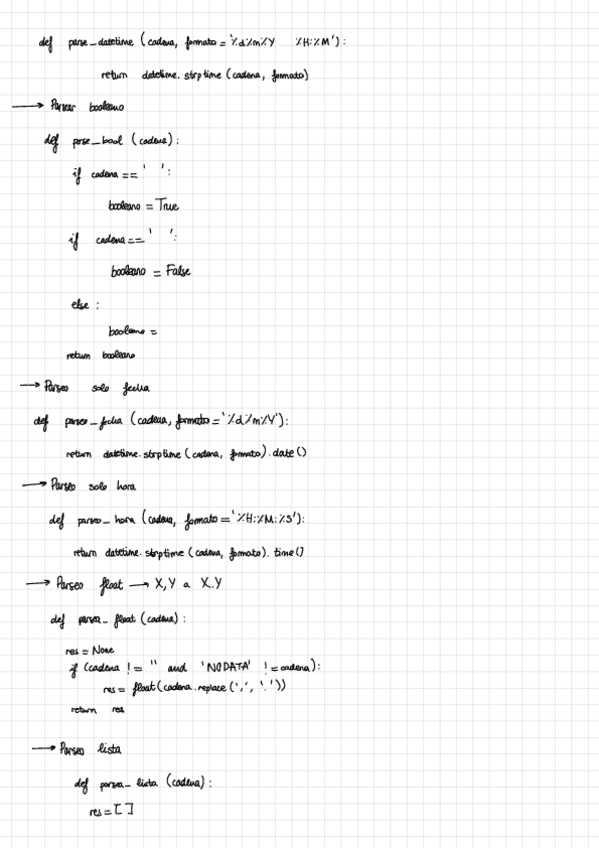 def parse_datetime (cadena, formato = '%d/%m/%Y %H:%M'):
return datetime.strptime (cadena, formato)
→ Parsear booleano
def parse_bool (cadena):
if cadena == ' ':
booleano = True
if cadena == ' ':
booleano = False
else :
booleano =
return booleano
→ Parseo solo fecha
def parseo_fecha (cadena, formato = '%d/%m/%Y'):
return datetime.strptime (cadena, formato).date()
→ Parseo solo hora
def parseo_hora (cadena, formato = '%H:%M:%S'):
return datetime.strptime (cadena, formato).time()
→ Parseo float → X,Y a X.Y
def parsea_float (cadena):
res = None
if (cadena != '' and 'NODATA' != cadena):
res = float(cadena.replace(',', '.'))
return res
→ Parseo lista
def parsea_lista (cadena):
res = [ ]